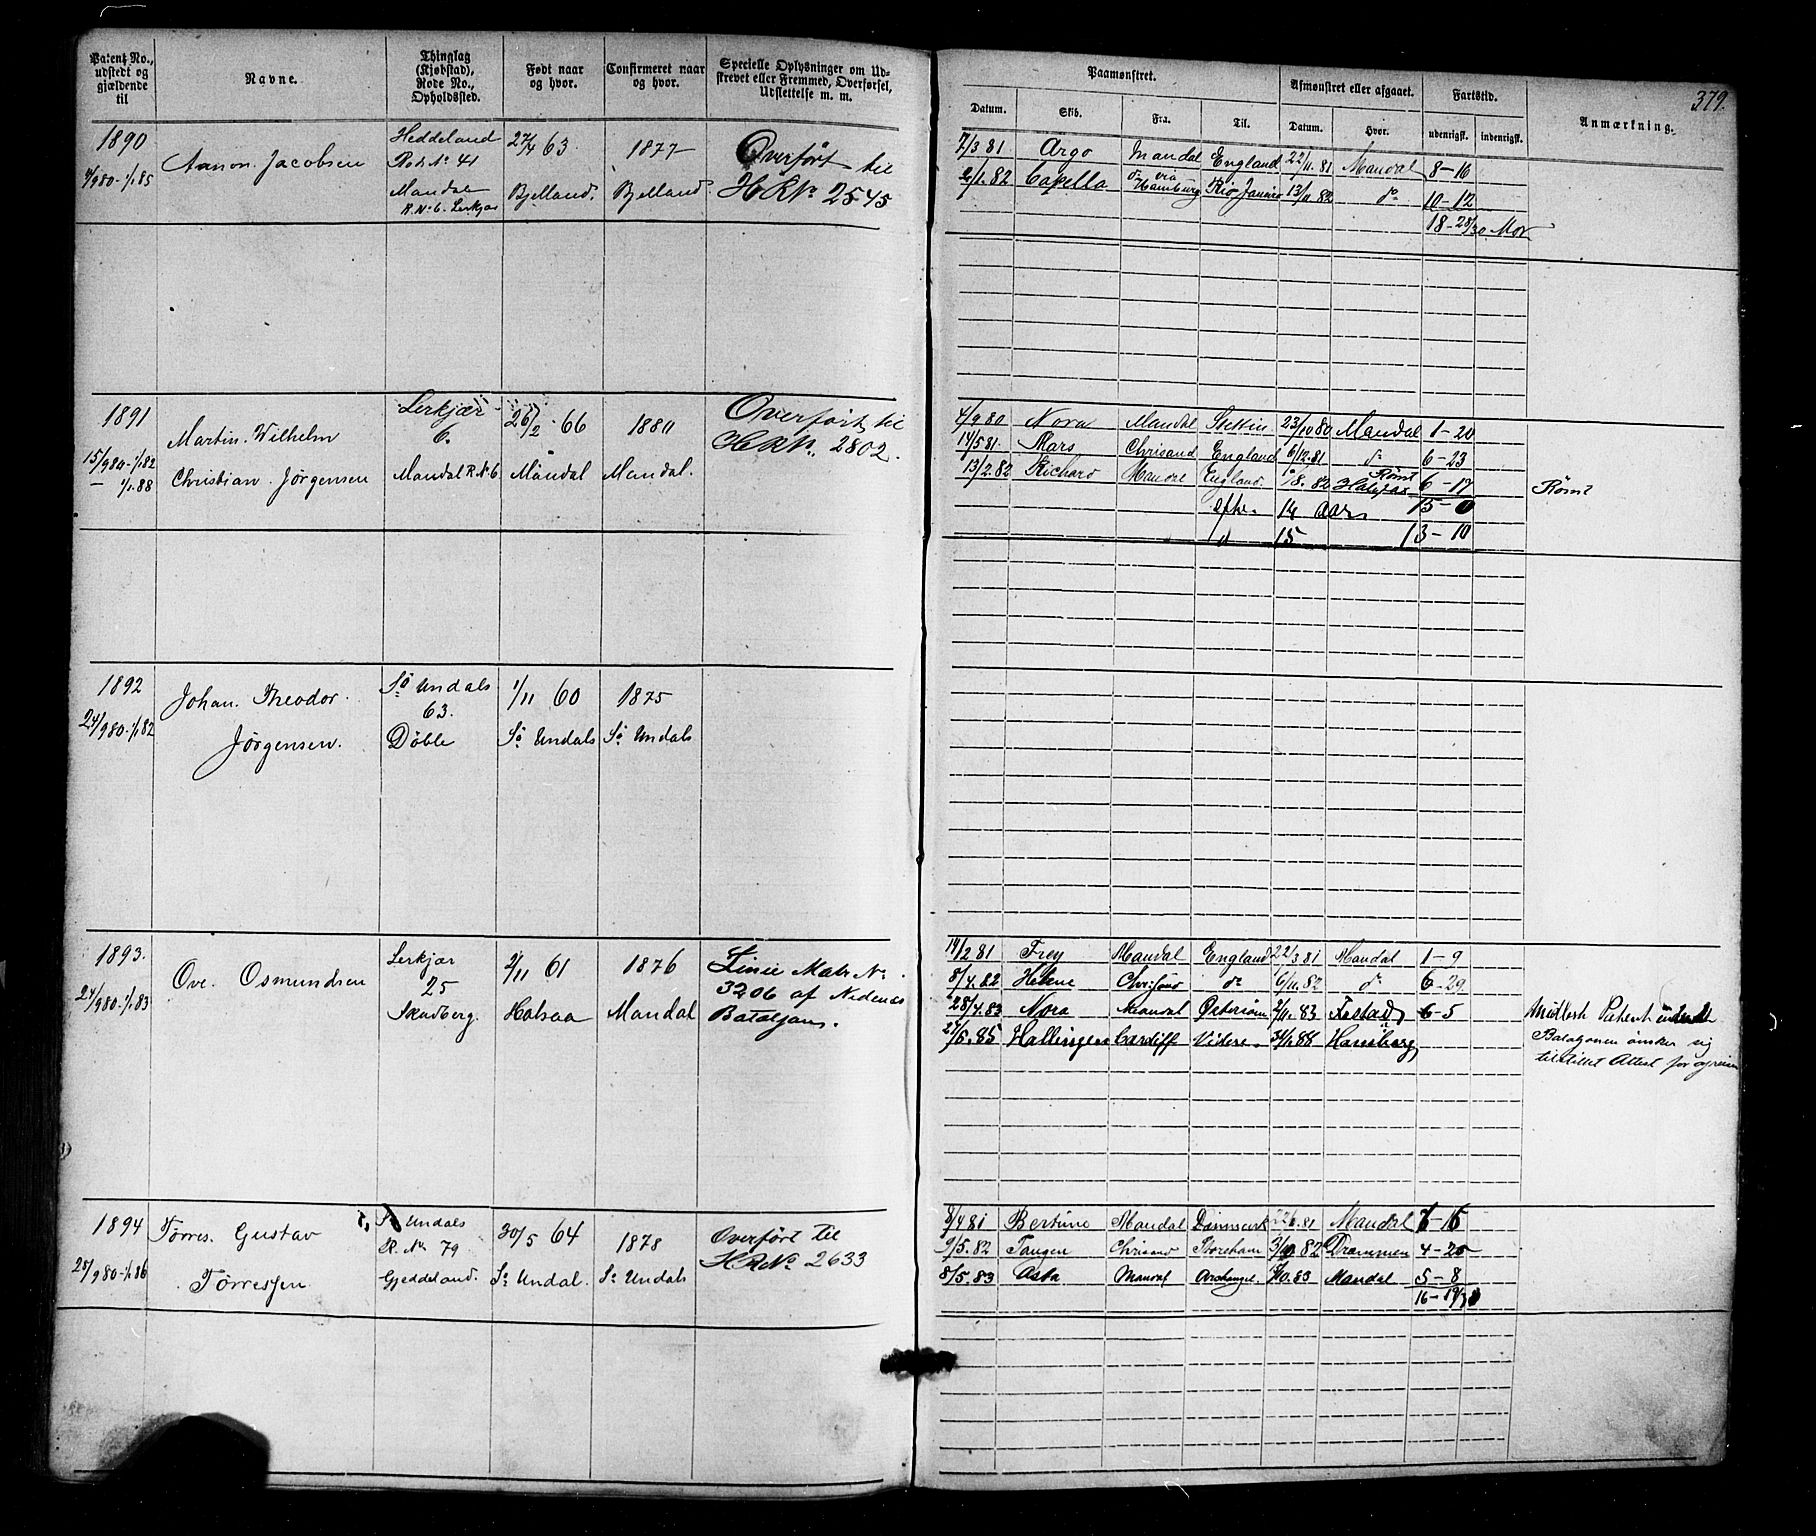 379.
Patent No., udstedt og gjældende til
Navne.
Thinglag (Kjøbstad), Rode No., Opholdssted.
Født naar og hvor.
Confirmeret naar og hvor.
Specielle Oplysninger om Udskrevet eller Fremmed, Overførsel, Udslettelse m. m.
Paamønstret.
Afmønstret eller afgaaet.
Fartstid.
Anmærkning.
Datum.
Skib.
Fra.
Til.
Datum.
Hvor.
udenrigsk.
indenrigsk.
1890
4/9 80 - 1/1 85
Aanon. Jacobsen
Heddeland
Rod. No 41
Mandal
R. No 6. Lerkjær
27/4 63
Bjelland.
1877
Bjelland
Overført til
HR No. 2545
7/3 81 Argo Mandal England 22/11. 81 Mandal 8-16
2/1. 82 Capella do via Hamburg Rio Janeiro 13/11 82 do 10-12
18-28/30 Mdr
1891
15/9 80 - 1/1 82
— 1/1. 88
Martin. Wilhelm
Christian. Jørgensen
Lerkjær
6.
Mandal R. No 6
26/2 - 66
Mandal
1880
Mandal.
Overført til
HR No. 2802.
4/9 80 Nora Mandal Stettin 23/10 80 Mandal 1-20
14/5 81. Mars Chrisand England 6/12. 81 do 6-23
13/2. 82 Richard Mandal England. /8. 82 Rømt Halifax 6-17 Rømt
efter 14 aar 15-0
d 15 13-10
1892
24/9 80 - 1/1 82
Johan. Theodor.
Jørgensen.
So Undals
63.
Døble
1/11 60
So Undals
1875
So Undals
1893.
24/9 80 - 1/1 83
Ove. Osmundsen
Lerkjær
25
Skadberg.
2/11 61
Halsaa
1876
Mandal
Linie Matr No.
3206 af Nedenes
Bataljons.
14/2 81 Frey Mandal England 22/3 81 Mandal 1-9
8/4. 82 Helene Chrisand do 6/11. 82 do 6-29
28/4. 83 Nora Mandal Østerisøer 2/11. 83 Festad 6-5
27/6. 85 Hallingen Cardiff Videre. 31/1 88 Hamburg
Midlert. Patent
Bataljonen ønsker sig
tilstillet Attest for
1894
28/9 80 - 1/1 86
Tørres. Gustav
Tørresen
So Undals
R. No 79
Gjeddeland.
30/5 64
So Undal.
1878
So Undals
Overført til
HR No. 2633
9/4 81 Bertine Mandal Danmark 22/6. 81 Mandal 6-16
9/5. 82 Tangen Chrisand Storeham 3/10. 82 Drammen 4-25
8/5. 83 Asta Mandal Archangel /10. 83 Mandal 5-8
16-19/30